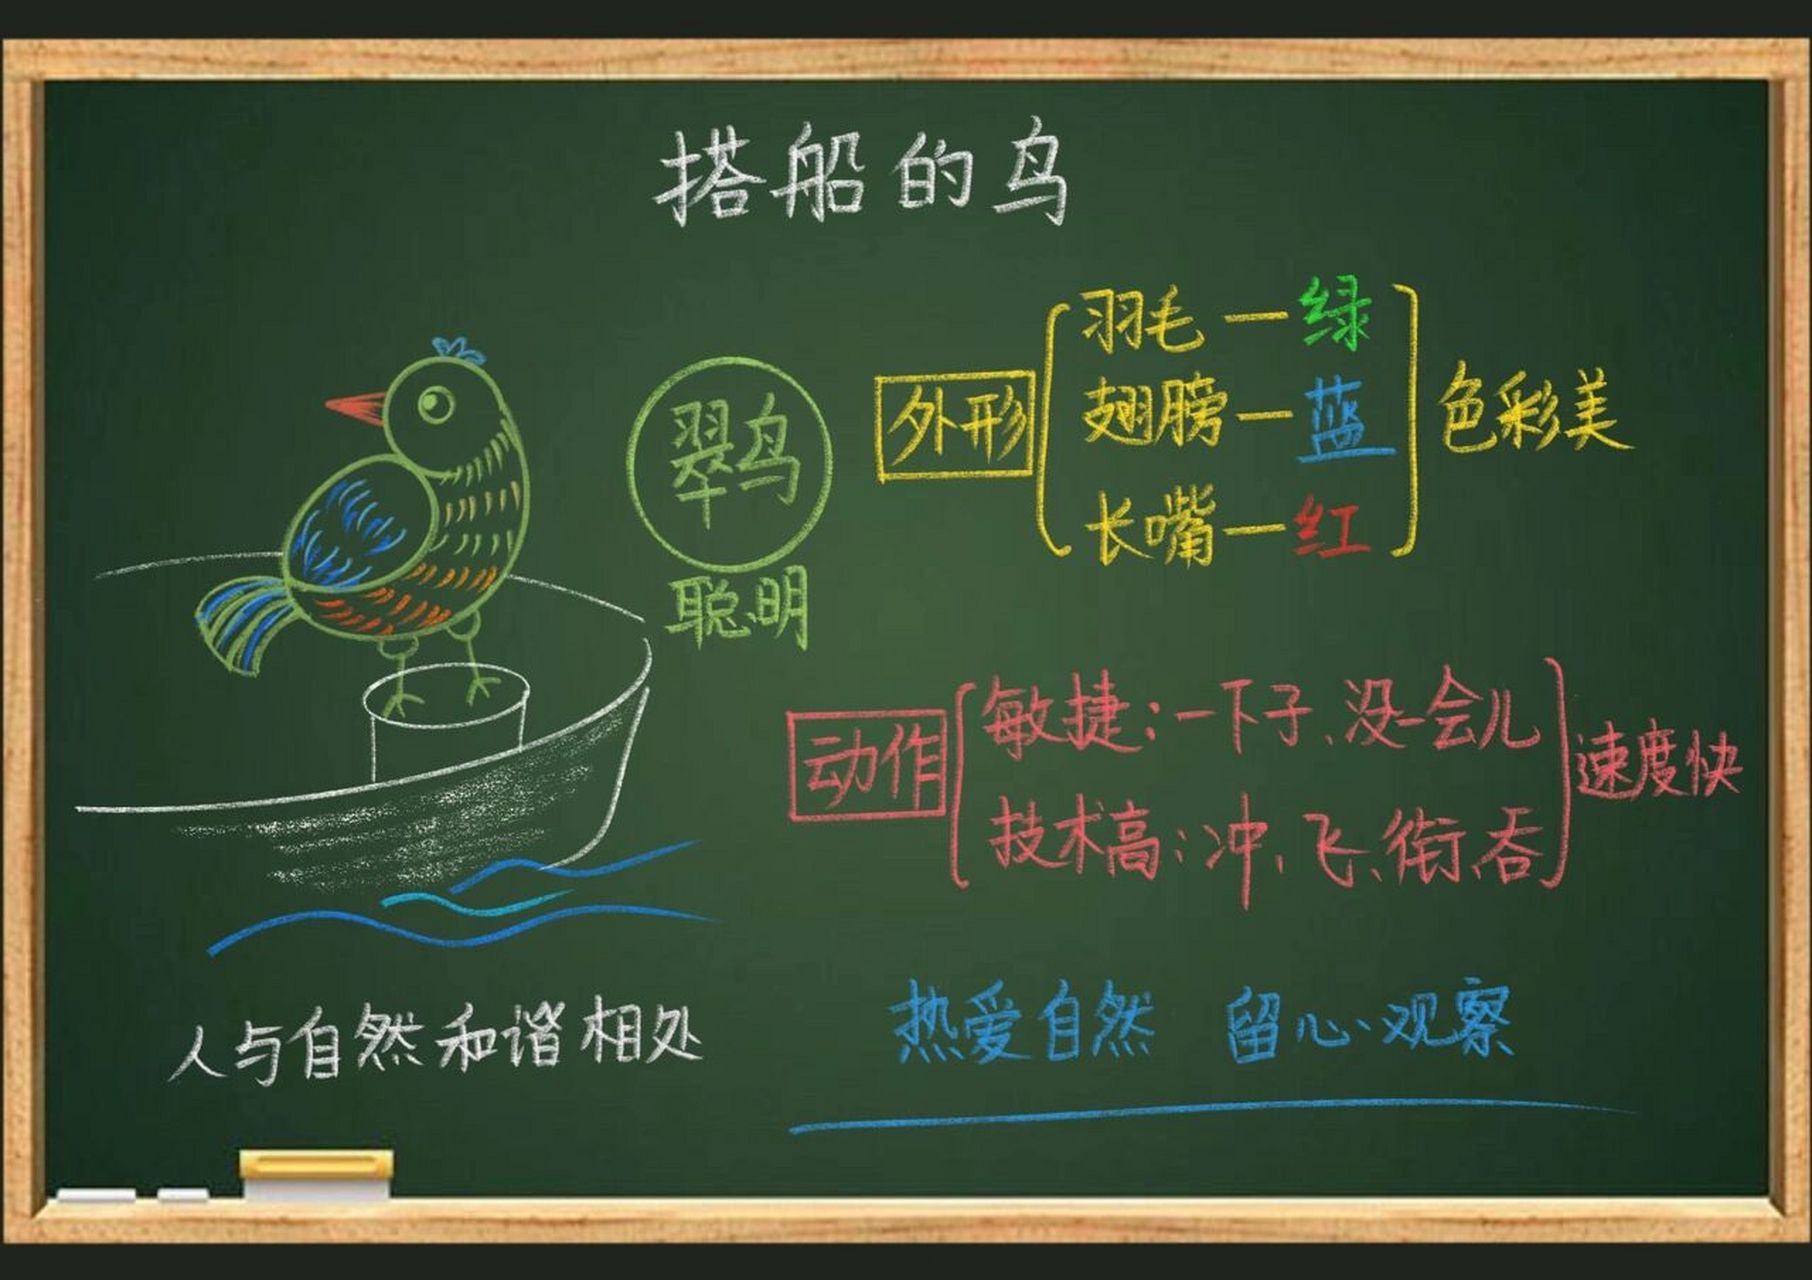 搭船的鸟
翠鸟
聪明
外形
羽毛—绿
翅膀—蓝
长嘴—红
色彩美
动作
敏捷：一下子、没一会儿
技术高：冲、飞、衔、吞
速度快
人与自然和谐相处
热爱自然 留心观察